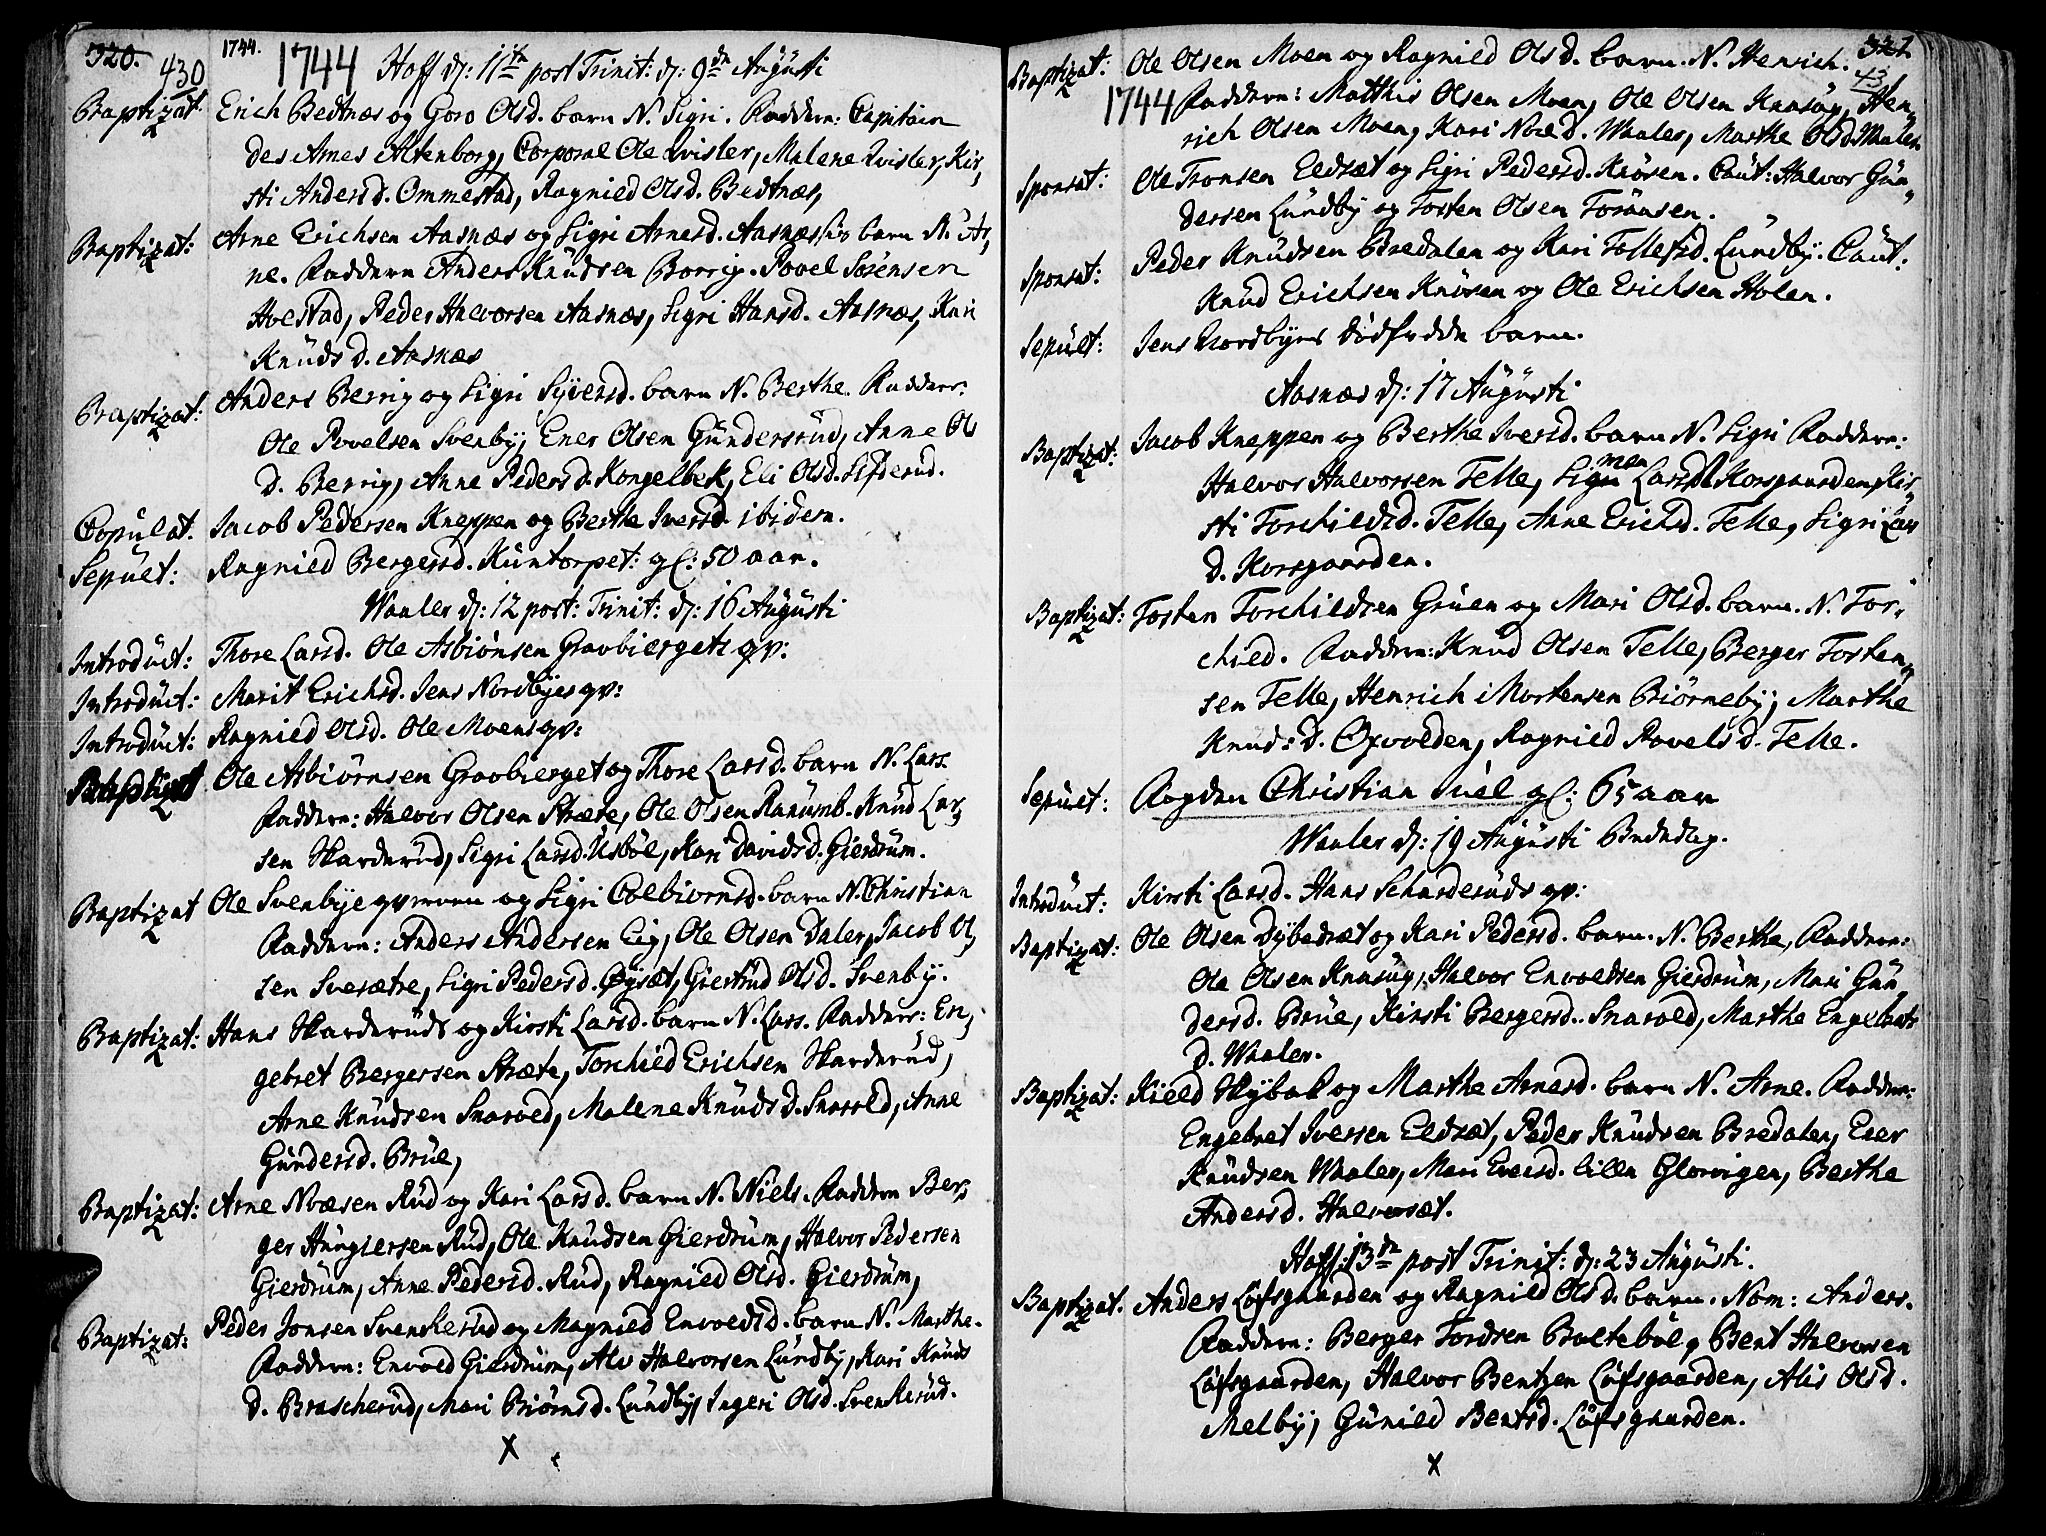 320.
430
1744.
1744 Hoff d: 11te post Trinit: d: 9de Augusti
Baptizat Erich Bedtnæs og Goro Olsd. barn N. Sigri. Faddere: Capitain
des Arnes Altenborg, Corporal Ole Qvisler, Malene Qvisler, Kir,
sti Andersd. Ommestad, Ragnild Olsd. Bedtnæs,
Baptizat: Arne Erichsen Aasnæs og Sigri Arnesd. Aasnæs barn N. Ar,
ne. Faddere Anders Knudsen Berrig. Povel Sørensen
Hoelstad, Peder Halvorsen Aasnæs, Sigri Hansd. Aasnæs, Kari
Knudsd. Aasnæs
Baptizat: Anders Berrig og Sigri Syversd. barn N. Berthe. Faddere:
Ole Povelsen Svenby, Ener Olsen Gundersrud, Anne Ols
d. Berrig, Anne Pedersd. Kongelbek, Eli Olsd. Lisserud.
Copulat. Jacob Pedersen Kneppen og Berthe Iversd. ibidem.
Sepult: Ragnild Bergersd. Kuntorpet: gl: 50 aar.
Waaler d: 12 post: Trinit: d: 16 Augusti
Introduct: Thore Larsd. Ole Asbiønsen Gravbiergets qv:
Introduct: Marit Erichsd. Jens Nordbyes qv:
Introduct: Ragnild Olsd. Ole Moens qv:
Baptizat Ole Asbiørnsen Gravbierget og Thore Larsd. barn N. Lars.
Faddere: Halvor Olsen Stræte, Ole Olsen Ranumb. Knud Lar,
sen Skarderud, Sigri Larsd. Usbøl, Kari Davidsd. Gierdrum.
Baptizat Ole Svenbye qværnen og Sigri Colbiornsd. barn N. Christian
Faddere: Anders Andersen Eig, Ole Olsen Daler, Jacob Ol,
sen Sveræthe, Sigri Pedersd. Øysæt, Giertrud Olsd. Svenby.
Baptizat: Hans Skarderuds og Kirsti Larsd. barn N. Lars. Faddere: En,
gebret Bergersen Stræte, Torchild Erichsen Skarderud,
Arne Knudsen Snarold, Malene Knudsd. Snarold, Anne
Gundersd. Brue,
Baptizat: Arne Noæsen Rud og Kari Larsd. barn N. Niels. Faddere Ber,
ger Hungiersen Rud, Ole Knudsen Gierdrum, Halvor Pedersen
Gierdrum, Anne Pedersd. Rud, Ragnild Olsd. Gierdrum,
Baptizat: Peder Jonsen Svenkerud og Magnild Envoldsd. barn N. Marthe.
Faddere: Envold Gierdrum, Alv Halvorsen Lundby, Kari Knuds
d. Brascherud, Mari Biørnsd. Lundby, Ingeri Olsd. Svenkerud.
X
321
43
Baptizat: Ole Olsen Moen og Ragnild Olsd. barn. N. Henrich.
1744 Faddere: Matthis Olsen Moen, Ole Olsen Knasug, Hen,
rich Olsen Moen, Kari Noæd. Waaler, Marthe Olsd. Waaler
Sponsat: Ole Tronsen Eldsæt og Sigri Pedersd. Knøsen. Caut: Halvor Gun,
dersen Lundby og Tosten Olsen Toraasen.
Sponsat: Peder Knudsen Bredalen og Kari Tollefsd. Lundby. Caut:
Knud Erichsen Knøsen og Ole Erichsen Holen.
Sepult: Jens Nordbyes dødfødde barn.
Aasnæs d: 17 Augusti
Baptizat: Jacob Kneppen og Berthe Iversd. barn N. Sigri Faddere:
Halvor Halvorsen Telle, Simen Larsen Korsgaarden, Kir,
sti Torchildsd. Telle, Anne Erichsd. Telle, Sigri Lars
d. Korsgaarden.
Baptizat: Tosten Torchildsen Gruen og Mari Olsd. barn. N. Tor,
child. Faddere: Knud Olsen Telle, Berger Tosten,
sen Telle, Henrich Mortensen Biørneby, Marthe
Knuds d. Oxvolden, Ragnild Povelsd. Telle.
Sepult: Fogden Christian Juel gl: 65 aar
Waaler d: 19 Augusti Bededag.
Introduct: Kirsti Larsd. Hans Scharderuds qv:
Baptizat: Ole Olsen Dybedræt og Kari Pedersd. barn. N. Berthe, Faddere:
Ole Olsen Knasug, Halvor Envoldsen Gierdrum, Mari Gun,
dersd. Brue, Kirsti Bergersd. Snarold, Marthe Engebrets
d. Waaler.
Baptizat: Kield Skybak og Marthe Arnesd. barn N. Arne. Faddere:
Engebret Iversen Eldsæt, Peder Knudsen Bredalen, Ener
Knudsen Waaler, Mari Eversd. lille Glorvigen, Berthe
Andersd. Halvorsæt.
Hoff: 13de post Trinit: d: 23 Augusti.
Baptizat. Anders Løfsgaarden og Ragnild Olsd. barn. Nom: Anders.
Faddere: Berger Tordsen Boltebøl, Bent Halvorsen
Løfsgaarden, Halvor Bentzen Løfsgaarden, Alis Olsd.
Melby, Gunild Bentsd. Løfsgaarden.
x